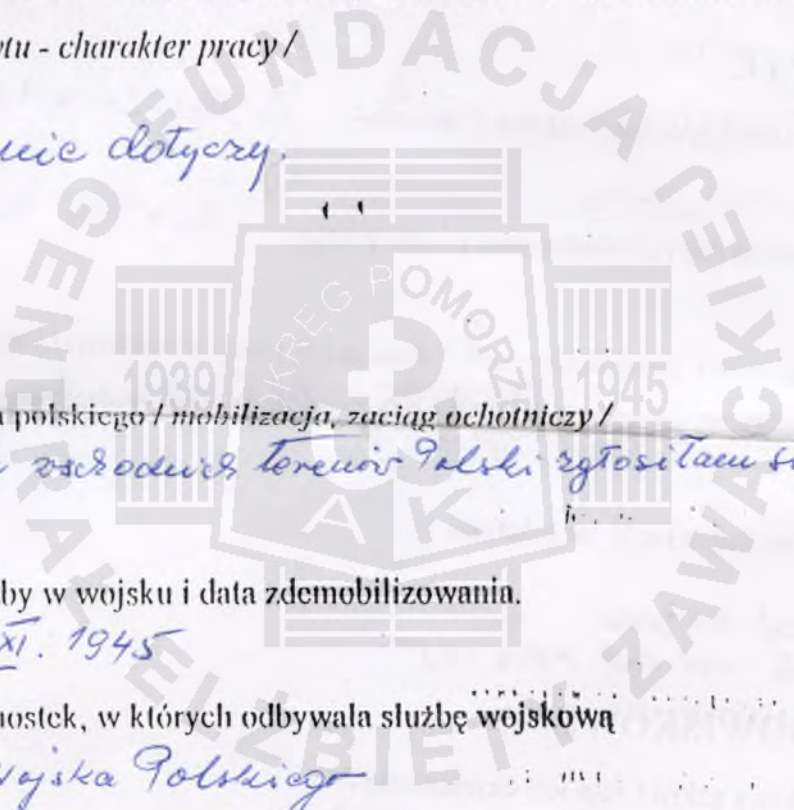 tu - charakter pracy /
nie dotyczy.
polskiego / mobilizacja, zaciąg ochotniczy /
wschodnich terenów Polski zgłosiłam
by w wojsku i data zdemobilizowania.
XI. 1945
nostek, w których odbywała służbę wojskową
Wojska Polskiego
FUNDACJA GENERAŁ ELŻBIETY ZAWACKIEJ
OKRĘG POMORZE
1939
1945
AK